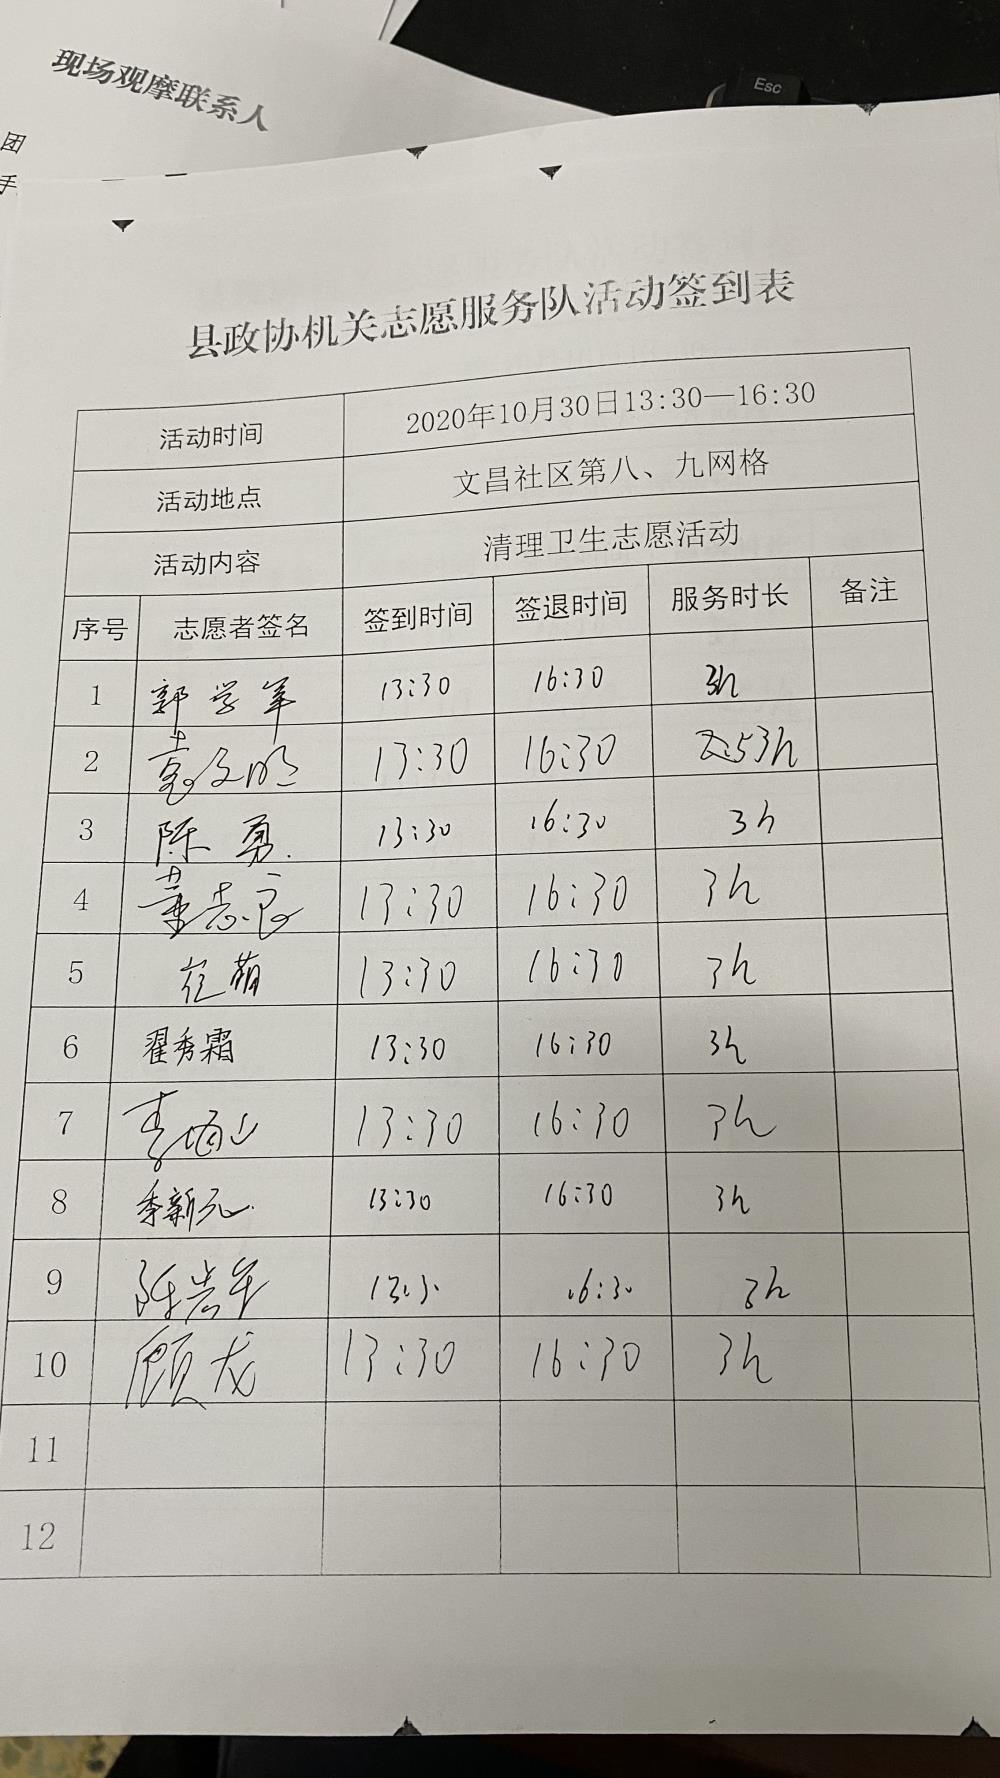 现场观摩联系人
团
手
Esc
县政协机关志愿服务队活动签到表
活动时间 2020年10月30日13:30—16:30
活动地点 文昌社区第八、九网格
活动内容 清理卫生志愿活动
序号 志愿者签名 签到时间 签退时间 服务时长 备注
1 郭学军 13:30 16:30 3h
2 袁文明 13:30 16:30 3h
3 陈勇 13:30 16:30 3h
4 董志良 13:30 16:30 3h
5 崔萌 13:30 16:30 3h
6 翟秀霜 13:30 16:30 3h
7 13:30 16:30 3h
8 季新元 13:30 16:30 3h
9 陈岩年 16:30 3h
10 顾龙 13:30 16:30 3h
11
12